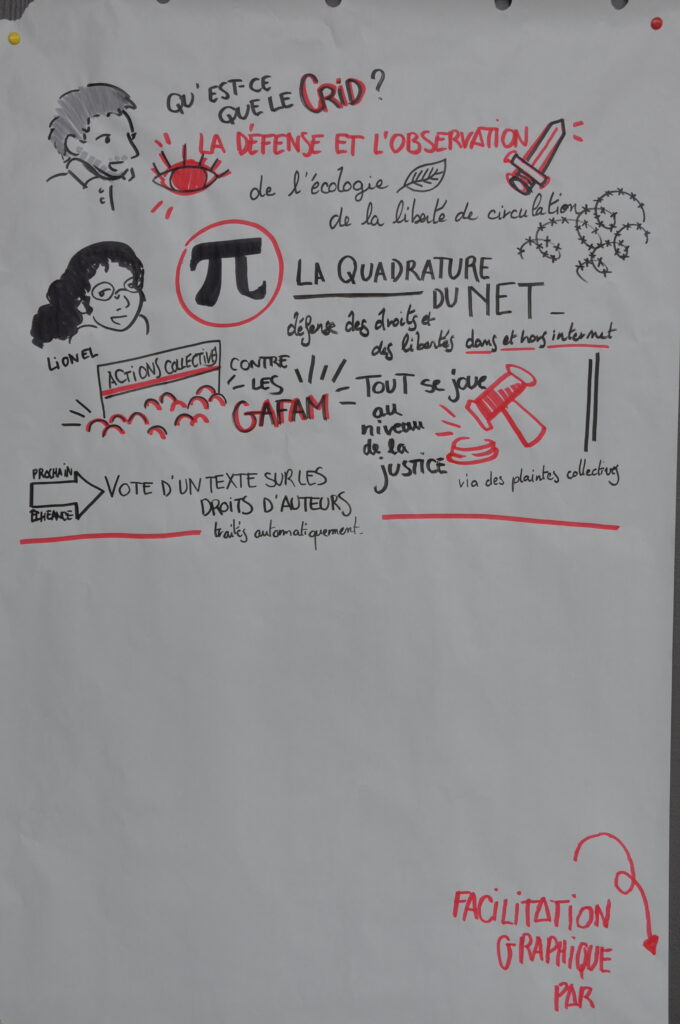 QU'EST-CE
QUE LE CRID ?
LA DÉFENSE ET L'OBSERVATION
de l'écologie
de la liberté de circulation
π
LA QUADRATURE
DU NET_
défense des droits et
des libertés dans et hors internet
LIONEL
ACTIONS COLLECTIVES
CONTRE
LES
GAFAM
TOUT se joue
au
niveau
de la
JUSTICE
via des plaintes collectives
PROCHAINE
ÉCHÉANCE
VOTE D'UN TEXTE SUR LES
DROITS D'AUTEURS
traités automatiquement_
FACILITATION
GRAPHIQUE
PAR